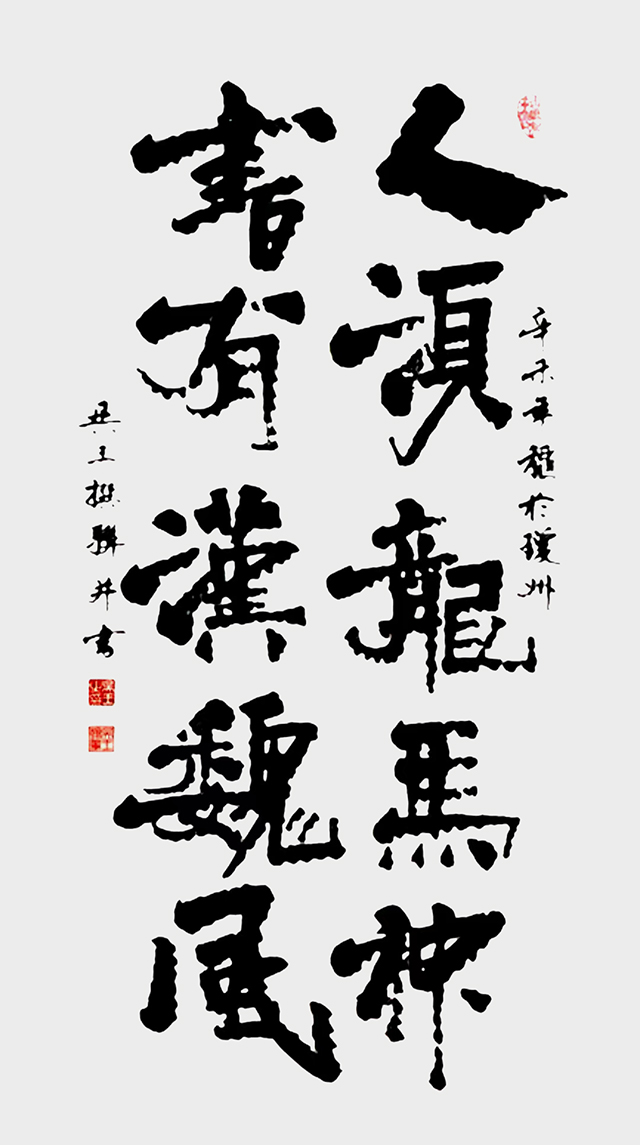 辛未年龝於瓊州
人須龍馬神
書有漢魏風
吴王撰聯并書